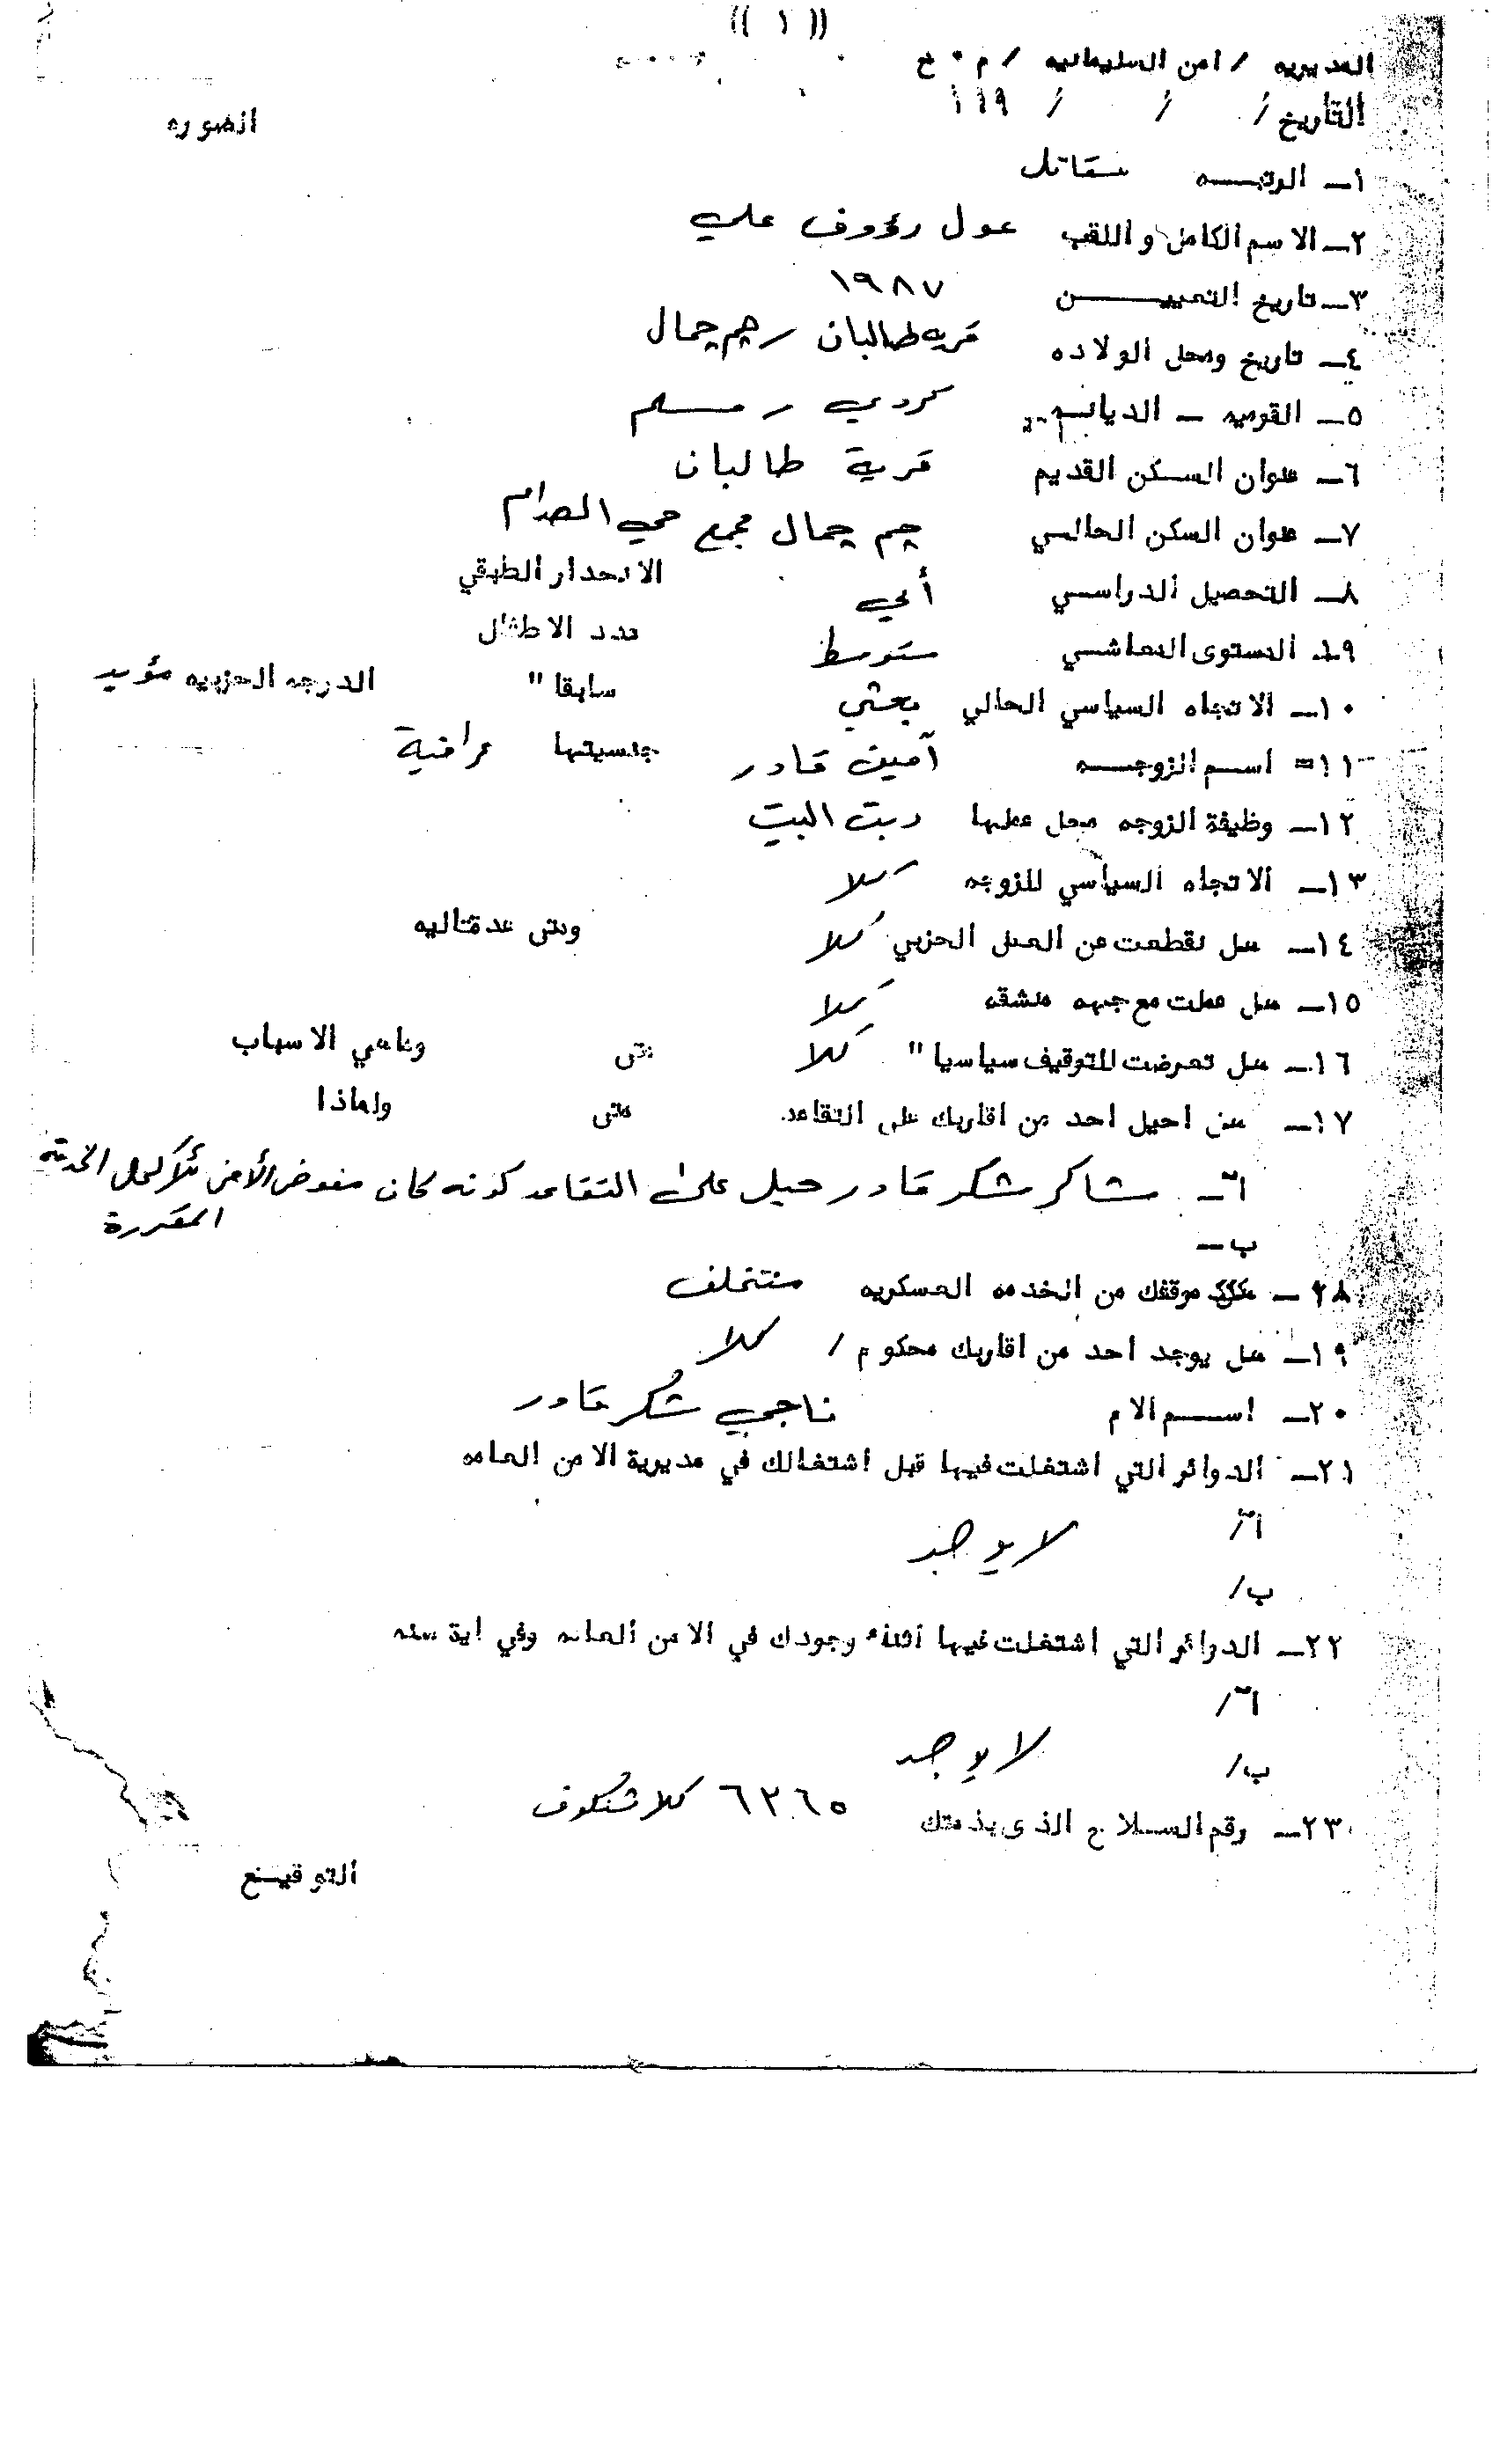 (( ١ ))
المديريه / امن السليمانيه / م ٠ خ
التأريخ / / / ١١٩
الصوره
١ـ الرتبـــه مقاتل
٢ـ الاسم الكامل و اللقب عول رؤوف علي
٣ـ تاريخ التعييـــن ١٩٨٧
٤ـ تاريخ ومحل الولاده قريه طالبان / چم چمال
٥ـ القوميه ـ الديانــه كردي / مسلم
٦ـ عنوان الســكن القديم قرية طالبان
٧ـ عنوان السكن الحالــي چم چمال مجمع حي الصدام
٨ـ التحصيل الدراســي أمي الانحدار الطبقي
٩ـ المستوى المعاشــي متوسط عدد الاطفال
١٠ـ الاتجاه السياسي الحالي بعثي سابقا " الدرجه الحزبيه مؤيد
١١= اســم الزوجــه آمين قادر جنسيتها عراقية
١٢ـ وظيفة الزوجه محل عملها ربت البيت
١٣ـ الاتجاه السياسي للزوجه كلا
١٤ـ هل نقطعت عن العمل الحزبي كلا ومتى عدة تاليه
١٥ـ هل عملت مع جبهه منشقه كلا
١٦ـ هل تعرضت للتوقيف سياسيا " كلا متى وماهي الاسباب
١٧ـ من احيل احد من اقاربك على التقاعد متى ولماذا
آـ شاكر شكر قادر حيل على التقاعد كونه كان مفوض الأمن الخدمة
المقررة
ب ـ
١٨ـ موقفك من الخدمه العسكريه متخلف
١٩ـ هل يوجد احد من اقاربك محكوم / كلا
٢٠ـ اســـم الام ناجي شكر قادر
٢١ـ الدوائر التي اشتغلت فيها قبل اشتغالك في مديرية الامن العامه
آ/
لا يوجد
ب/
٢٢ـ الدوائر التي اشتغلت فيها اثناء وجودك في الامن العامه وفي اية سنه
آ/
لا يوجد
ب/
٢٣ـ رقم الســلاح الذى بذمتك ٦٢٦٥ كلاشنكوف
التوقيــع